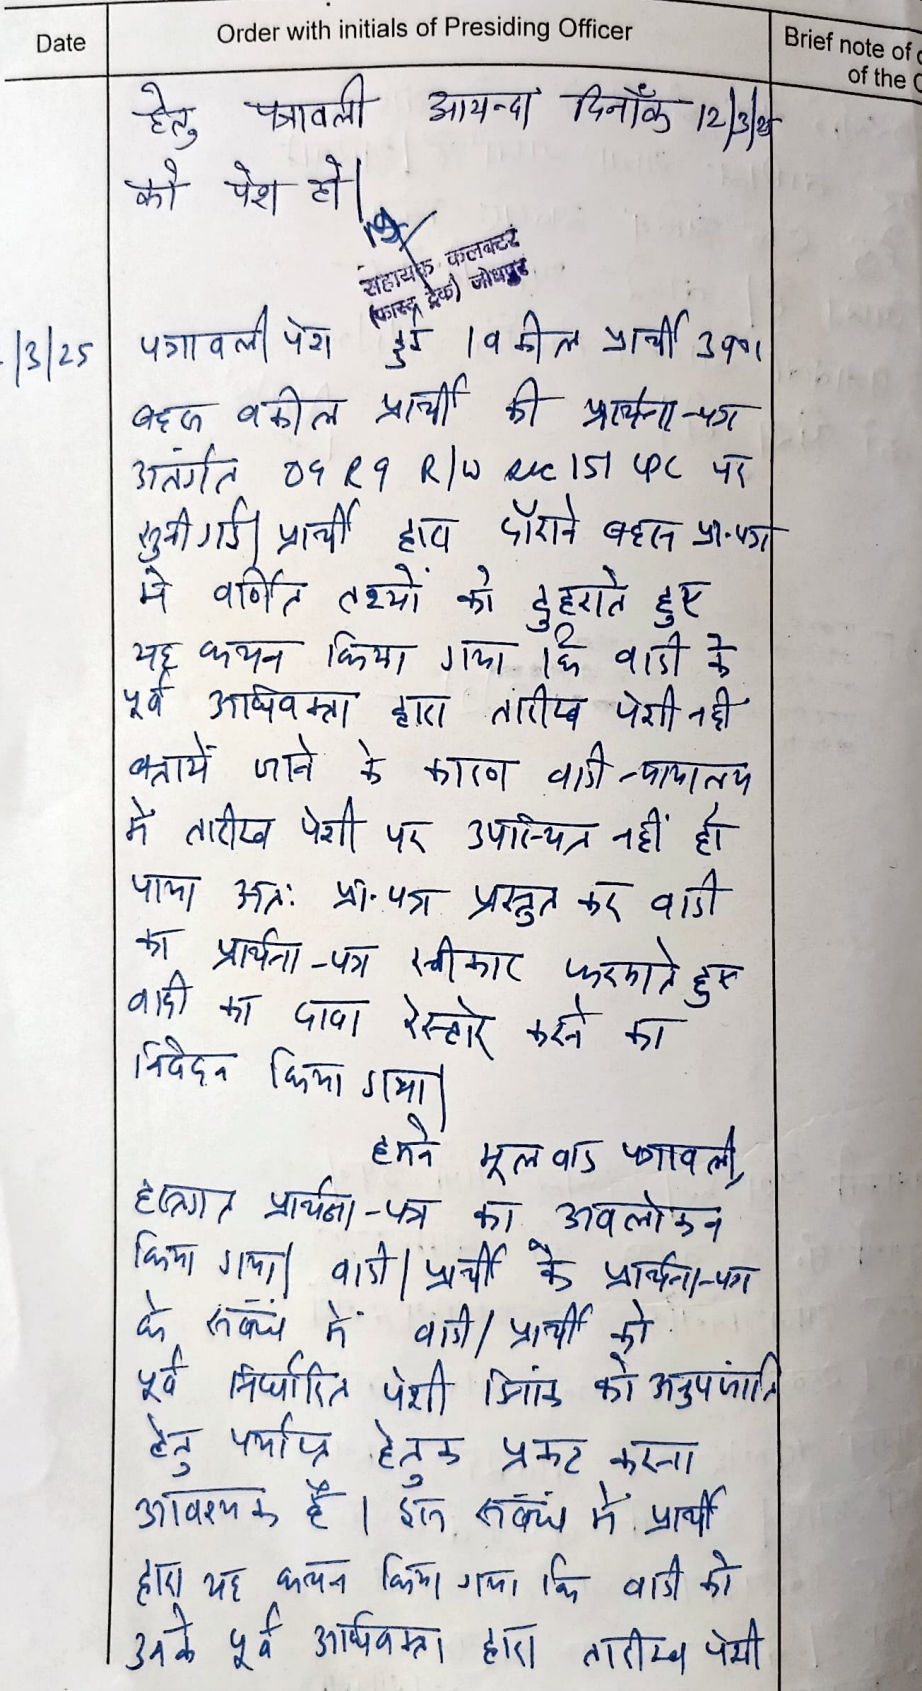 Date
Order with initials of Presiding Officer
Brief note of
of the
हेतु पत्रावली आयन्दा दिनाँक 12/3/25
को पेश हो।
सहायक कलक्टर
(फास्ट ट्रेक) जोधपुर
/3/25
पत्रावली पेश हुई। वकील प्रार्थी उप॰।
बहस वकील प्रार्थी की प्रार्थना-पत्र
अंतर्गत O9 R9 R/W sec 151 CPC पर
सुनी गई। प्रार्थी द्वारा दौराने बहस प्रा.पत्र
में वर्णित तथ्यों को दुहराते हुए
यह कथन किया गया कि वादी के
पूर्व अधिवक्ता द्वारा तारीख पेशी नहीं
बतायें जाने के कारण वादी न्यायालय
में तारीख पेशी पर उपस्थित नहीं हो
पाया अतः प्रा.पत्र प्रस्तुत कर वादी
का प्रार्थना-पत्र स्वीकार फरमाते हुए
वादी का दावा रेस्टोर करने का
निवेदन किया गया।
हमने मूल वाद पत्रावली,
हस्तगत प्रार्थना-पत्र का अवलोकन
किया गया। वादी/प्रार्थी के प्रार्थना-पत्र
के संबंध में वादी/प्रार्थी को
पूर्व निर्धारित पेशी दिनांक को अनुपस्थिति
हेतु पर्याप्त हेतुक प्रकट करना
आवश्यक है। इस संबंध में प्रार्थी
द्वारा यह कथन किया गया कि वादी को
उनके पूर्व अधिवक्ता द्वारा तारीख पेशी